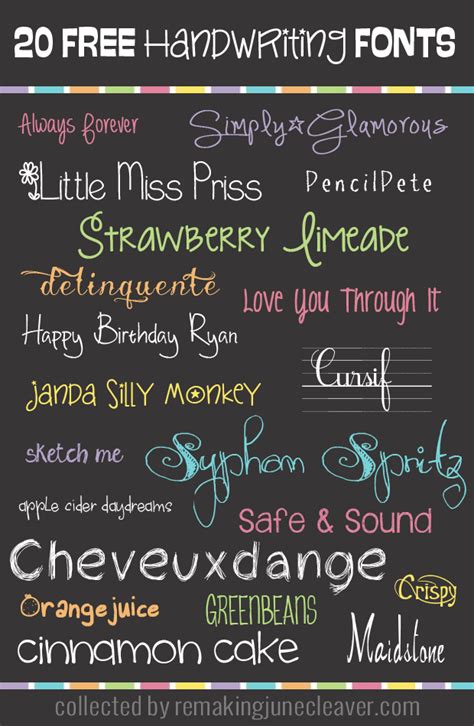 20 FREE HANDWRITING FONTS
Always Forever
Simply★Glamorous
Little Miss Priss
PencilPete
Strawberry Limeade
delinquente
Love You Through It
Happy Birthday Ryan
Cursif
Janda Silly Monkey
sketch me
Syphon Spritz
apple cider daydreams
Safe & Sound
Cheveuxdange
Crispy
Orangejuice
GREENBEANS
cinnamon cake
Maidstone
collected by remakingjunecleaver.com